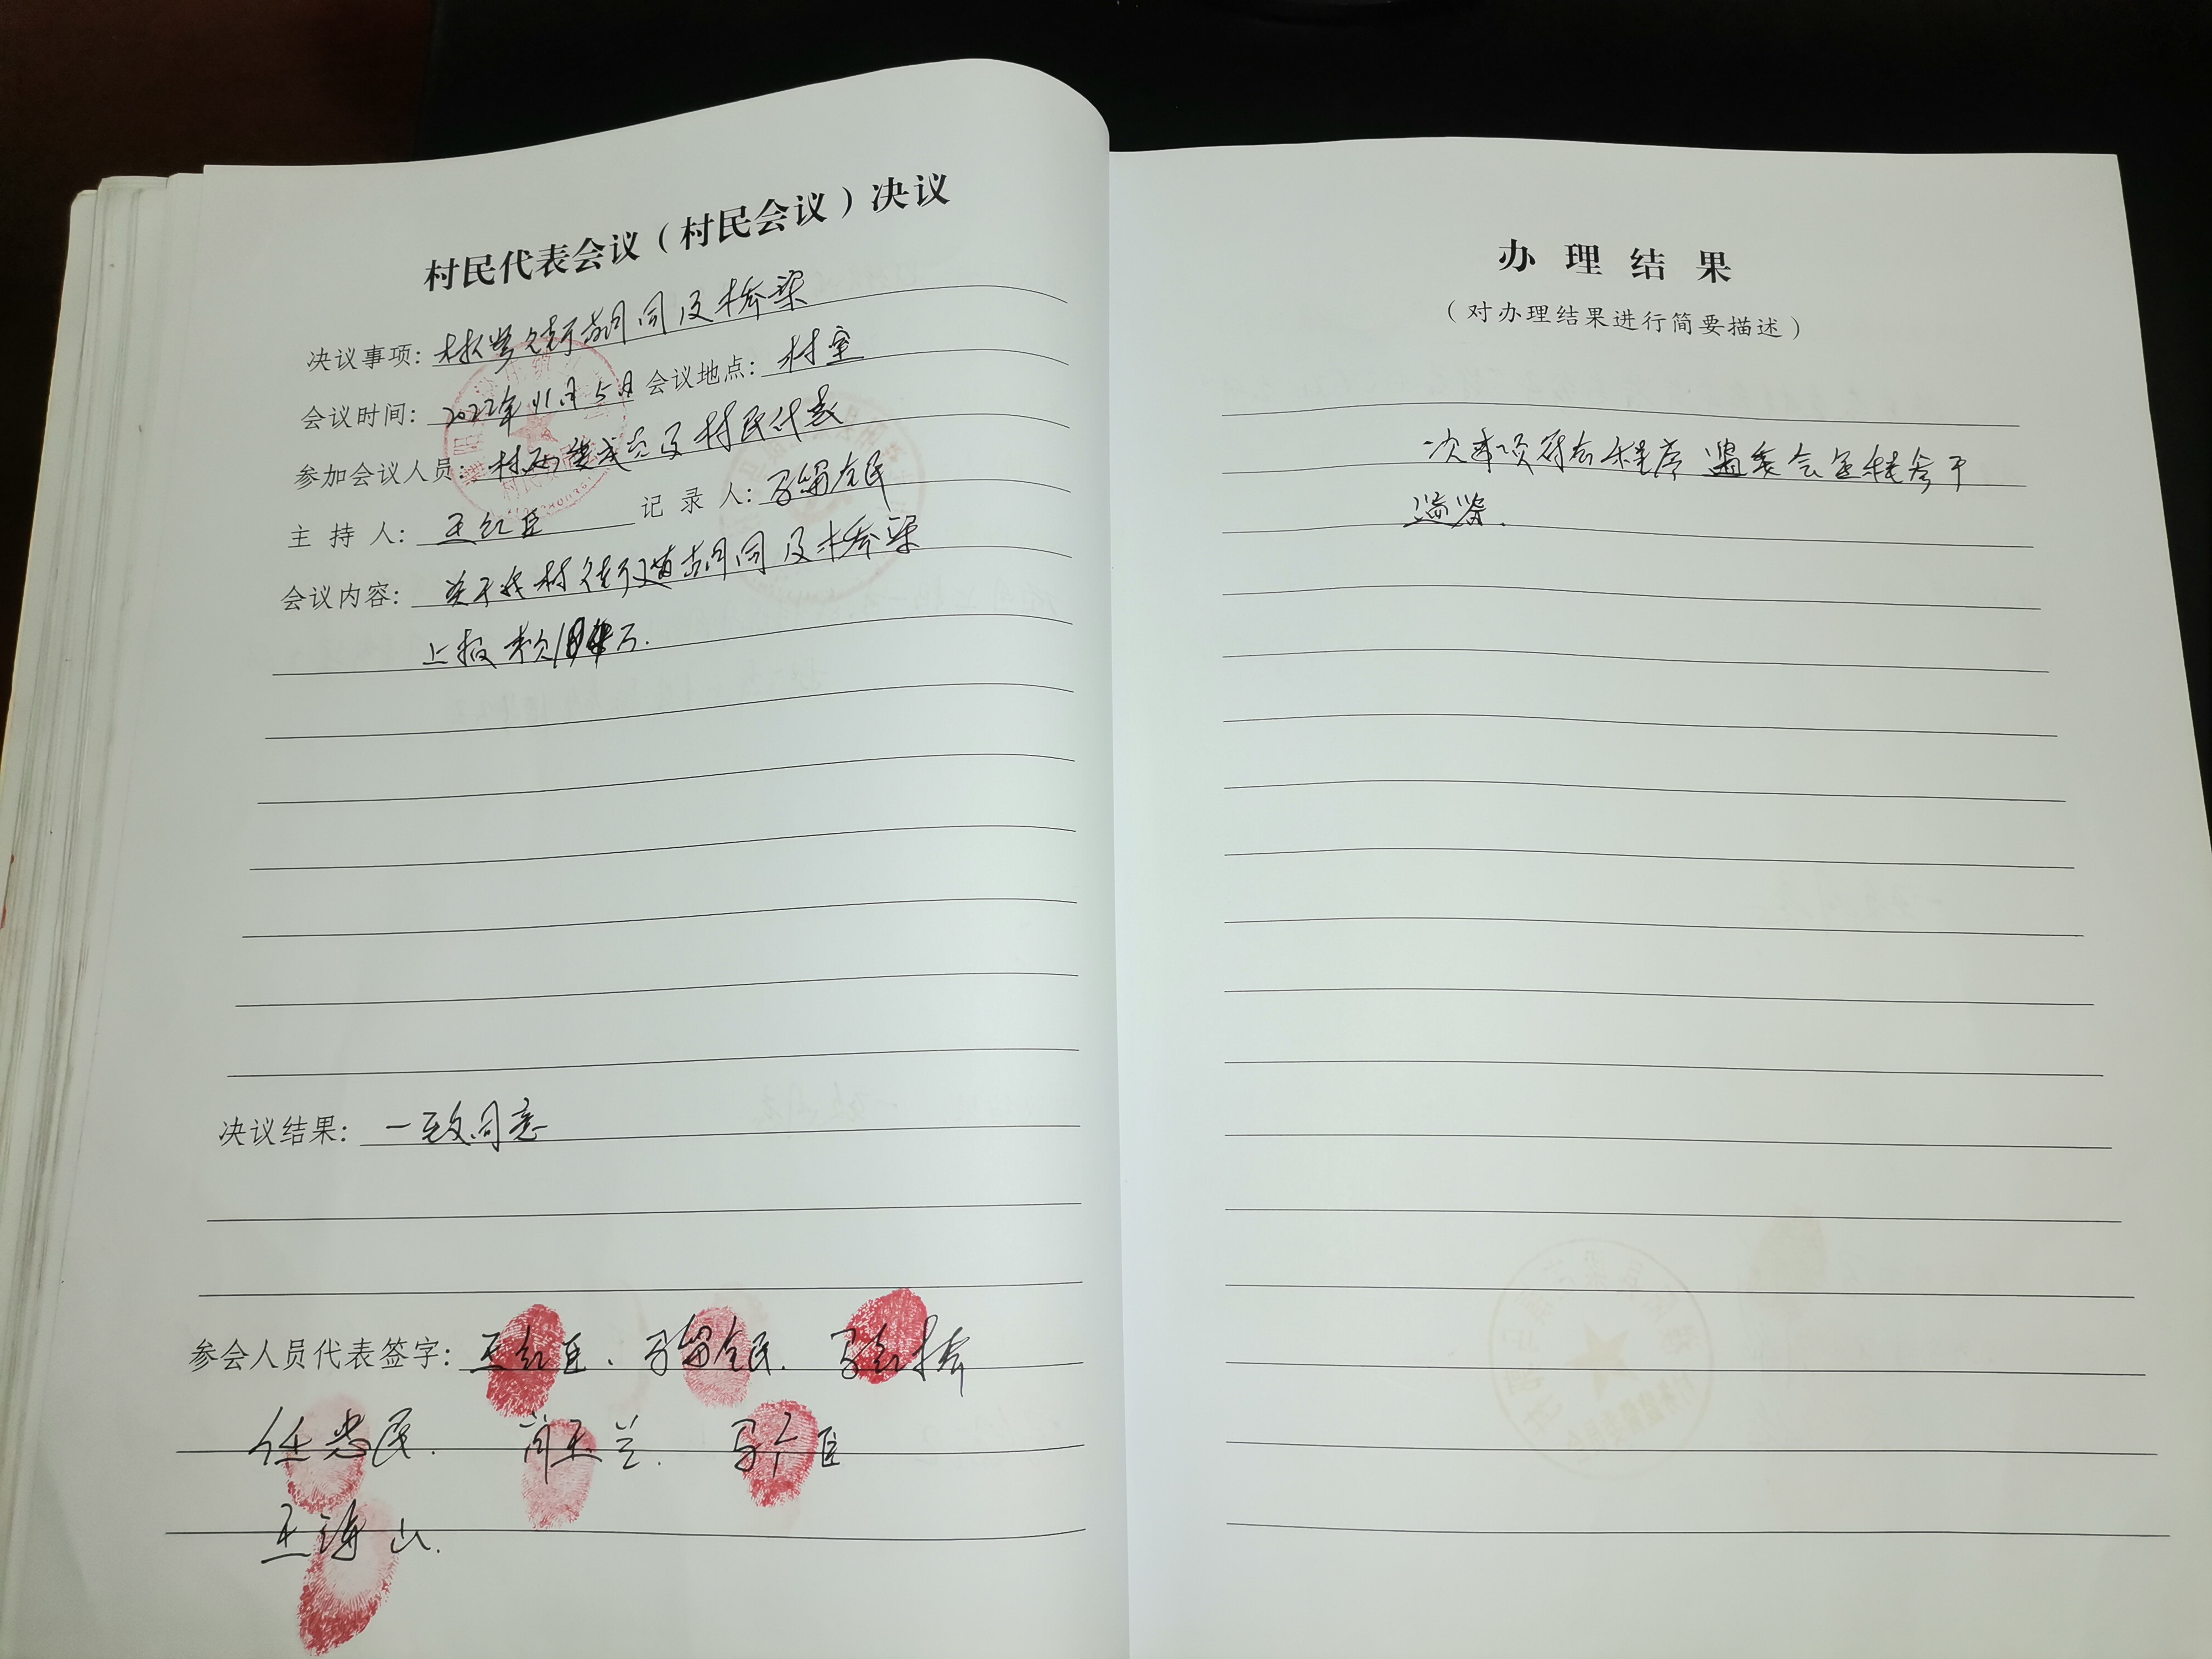 村民代表会议（村民会议）决议
决议事项: 街胡同及桥梁
会议时间: 2022年11月5日 会议地点: 村室
参加会议人员: 村两委成员及村民代表
主 持 人: 王红臣 记 录 人: 马留全民
会议内容: 关于我村街道胡同及桥梁
上报 万.
决议结果: 一致同意
参会人员代表签字: 王红臣、马留全民. 马红桥
任忠民. 简玉兰. 马广臣
王海山.
办 理 结 果
（对办理结果进行简要描述）
次事项符合程序 监委会全程参于
监督.